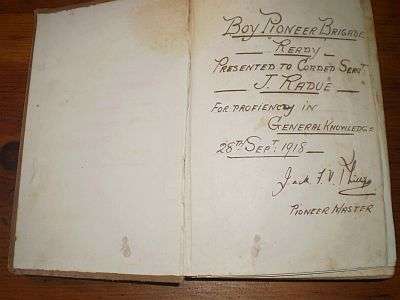 BOY PIONEER BRIGADE
READY
PRESENTED TO CORDED SERGT.
J. RADUE
FOR PROFIENCY IN
GENERAL KNOWLEDGE
28TH SEPT. 1918
Jack F. V.
PIONEER MASTER